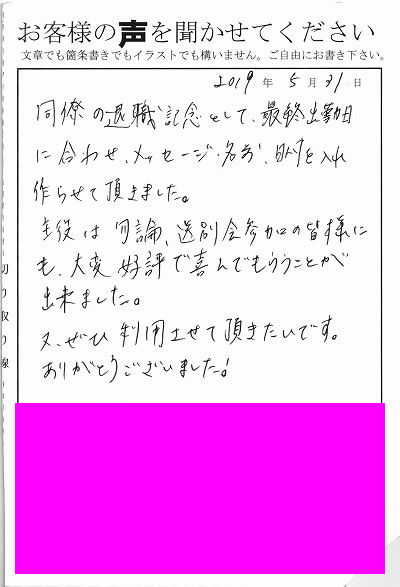 お客様の声を聞かせてください
文章でも箇条書きでもイラストでも構いません。ご自由にお書き下さい。
2019年5月31日
同僚の退職記念として、最終出勤日
に合わせ、メッセージ・名前、日付を入れ
作らせて頂きました。
主役は勿論、送別会参加の皆様に
も、大変好評で喜んでもらうことが
出来ました。
又、ぜひ利用させて頂きたいです。
ありがとうございました!
切り取り線